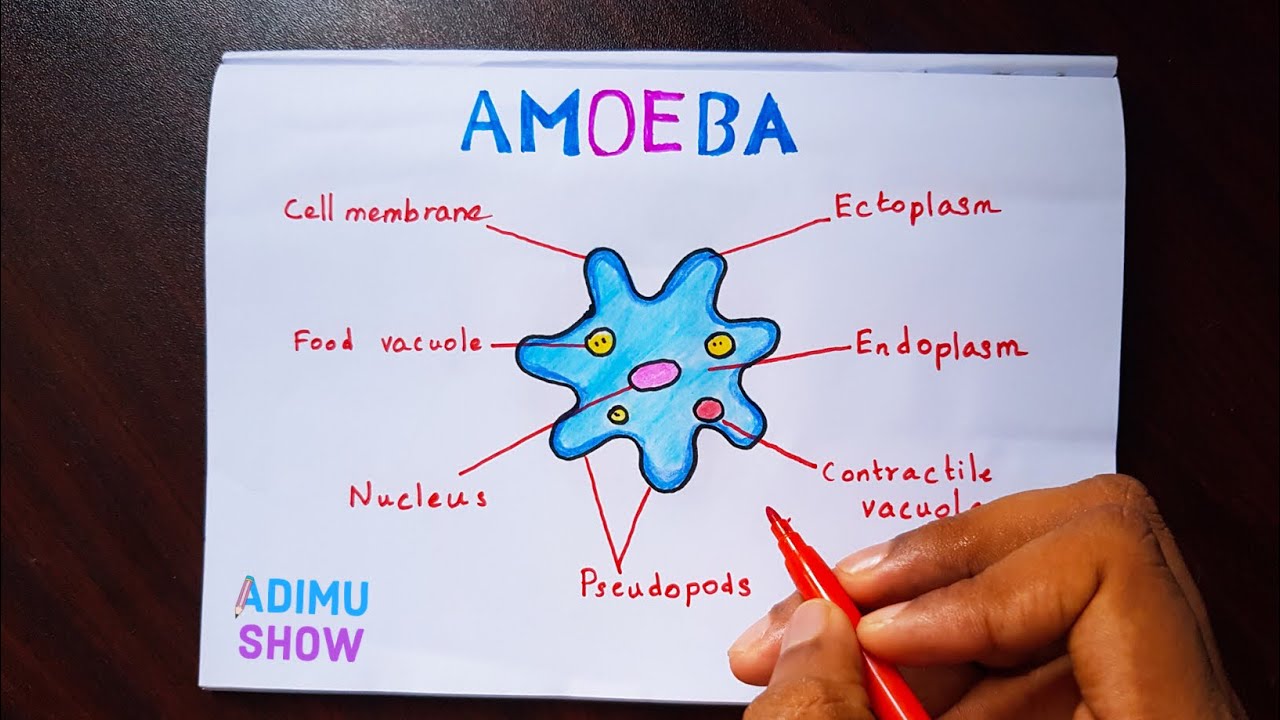 AMOEBA
Cell membrane
Ectoplasm
Food vacuole
Endoplasm
Nucleus
Contractile
vacuole
Pseudopods
ADIMU
SHOW